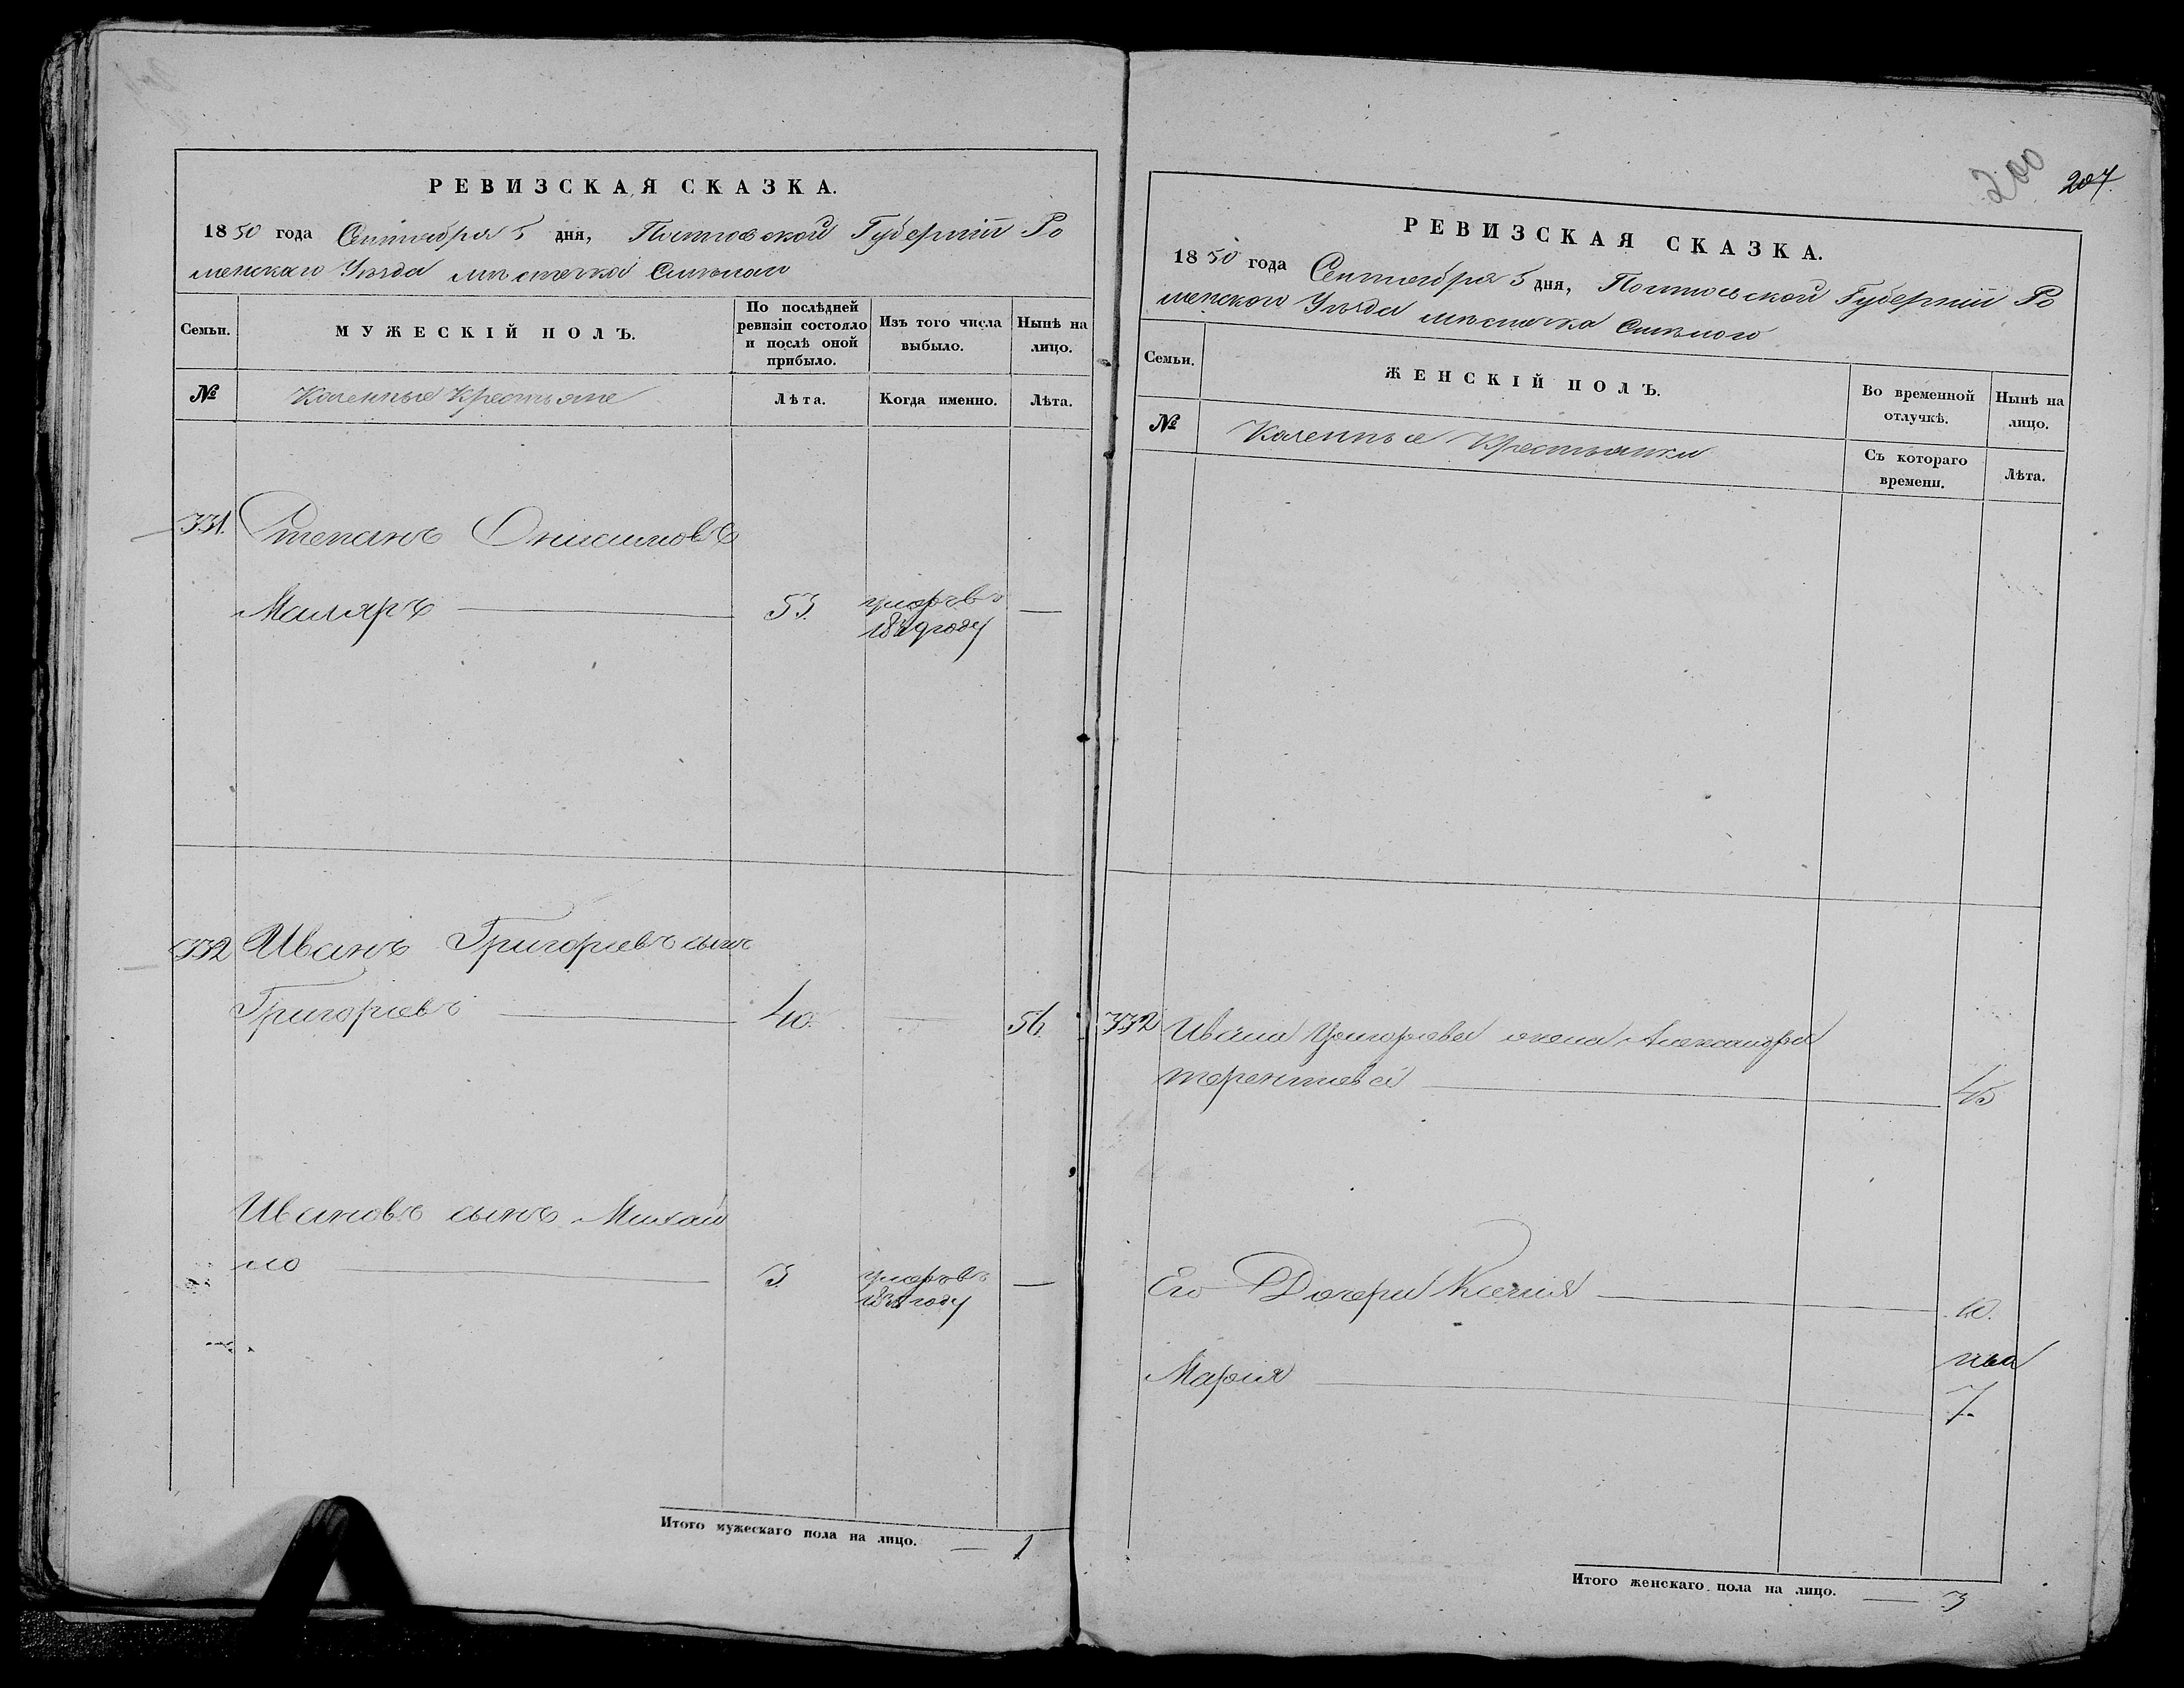 РЕВИЗСКАЯ СКАЗКА.
1850 года Сентября 5 дня, Полтавской Губерніи Ро
менскаго Уѣзда мѣстечка Смѣлаго
Семьи.
МУЖЕСКІЙ ПОЛЪ.
По послѣдней ревизіи состояло и послѣ оной прибыло.
Изъ того числа выбыло.
Нынѣ на лицо.
№
Казенные Крестьяне
Лѣта.
Когда именно.
Лѣта.
331. Степанъ Онисимовъ
Маляръ 53. умеръ въ —
году
332 Иванъ Григорьевъ сынъ
Григорьевъ 40. — 56.
Ивановъ сынъ Михай
ло 3. умеръ въ —
году
Итого мужескаго пола на лицо. — 1
200 207.
РЕВИЗСКАЯ СКАЗКА.
1850 года Сентября 5 дня, Полтавской Губерніи Ро
менскаго Уѣзда мѣстечка Смѣлаго
Семьи.
ЖЕНСКІЙ ПОЛЪ.
Во временной отлучкѣ.
Нынѣ на лицо.
№
Казенные Крестьянки
Съ котораго времени.
Лѣта.
332 Ивана Григорьева жена Александра
Терентьева 45
Его Дочери Ксенія
Марія 7.
Итого женскаго пола на лицо. — 3